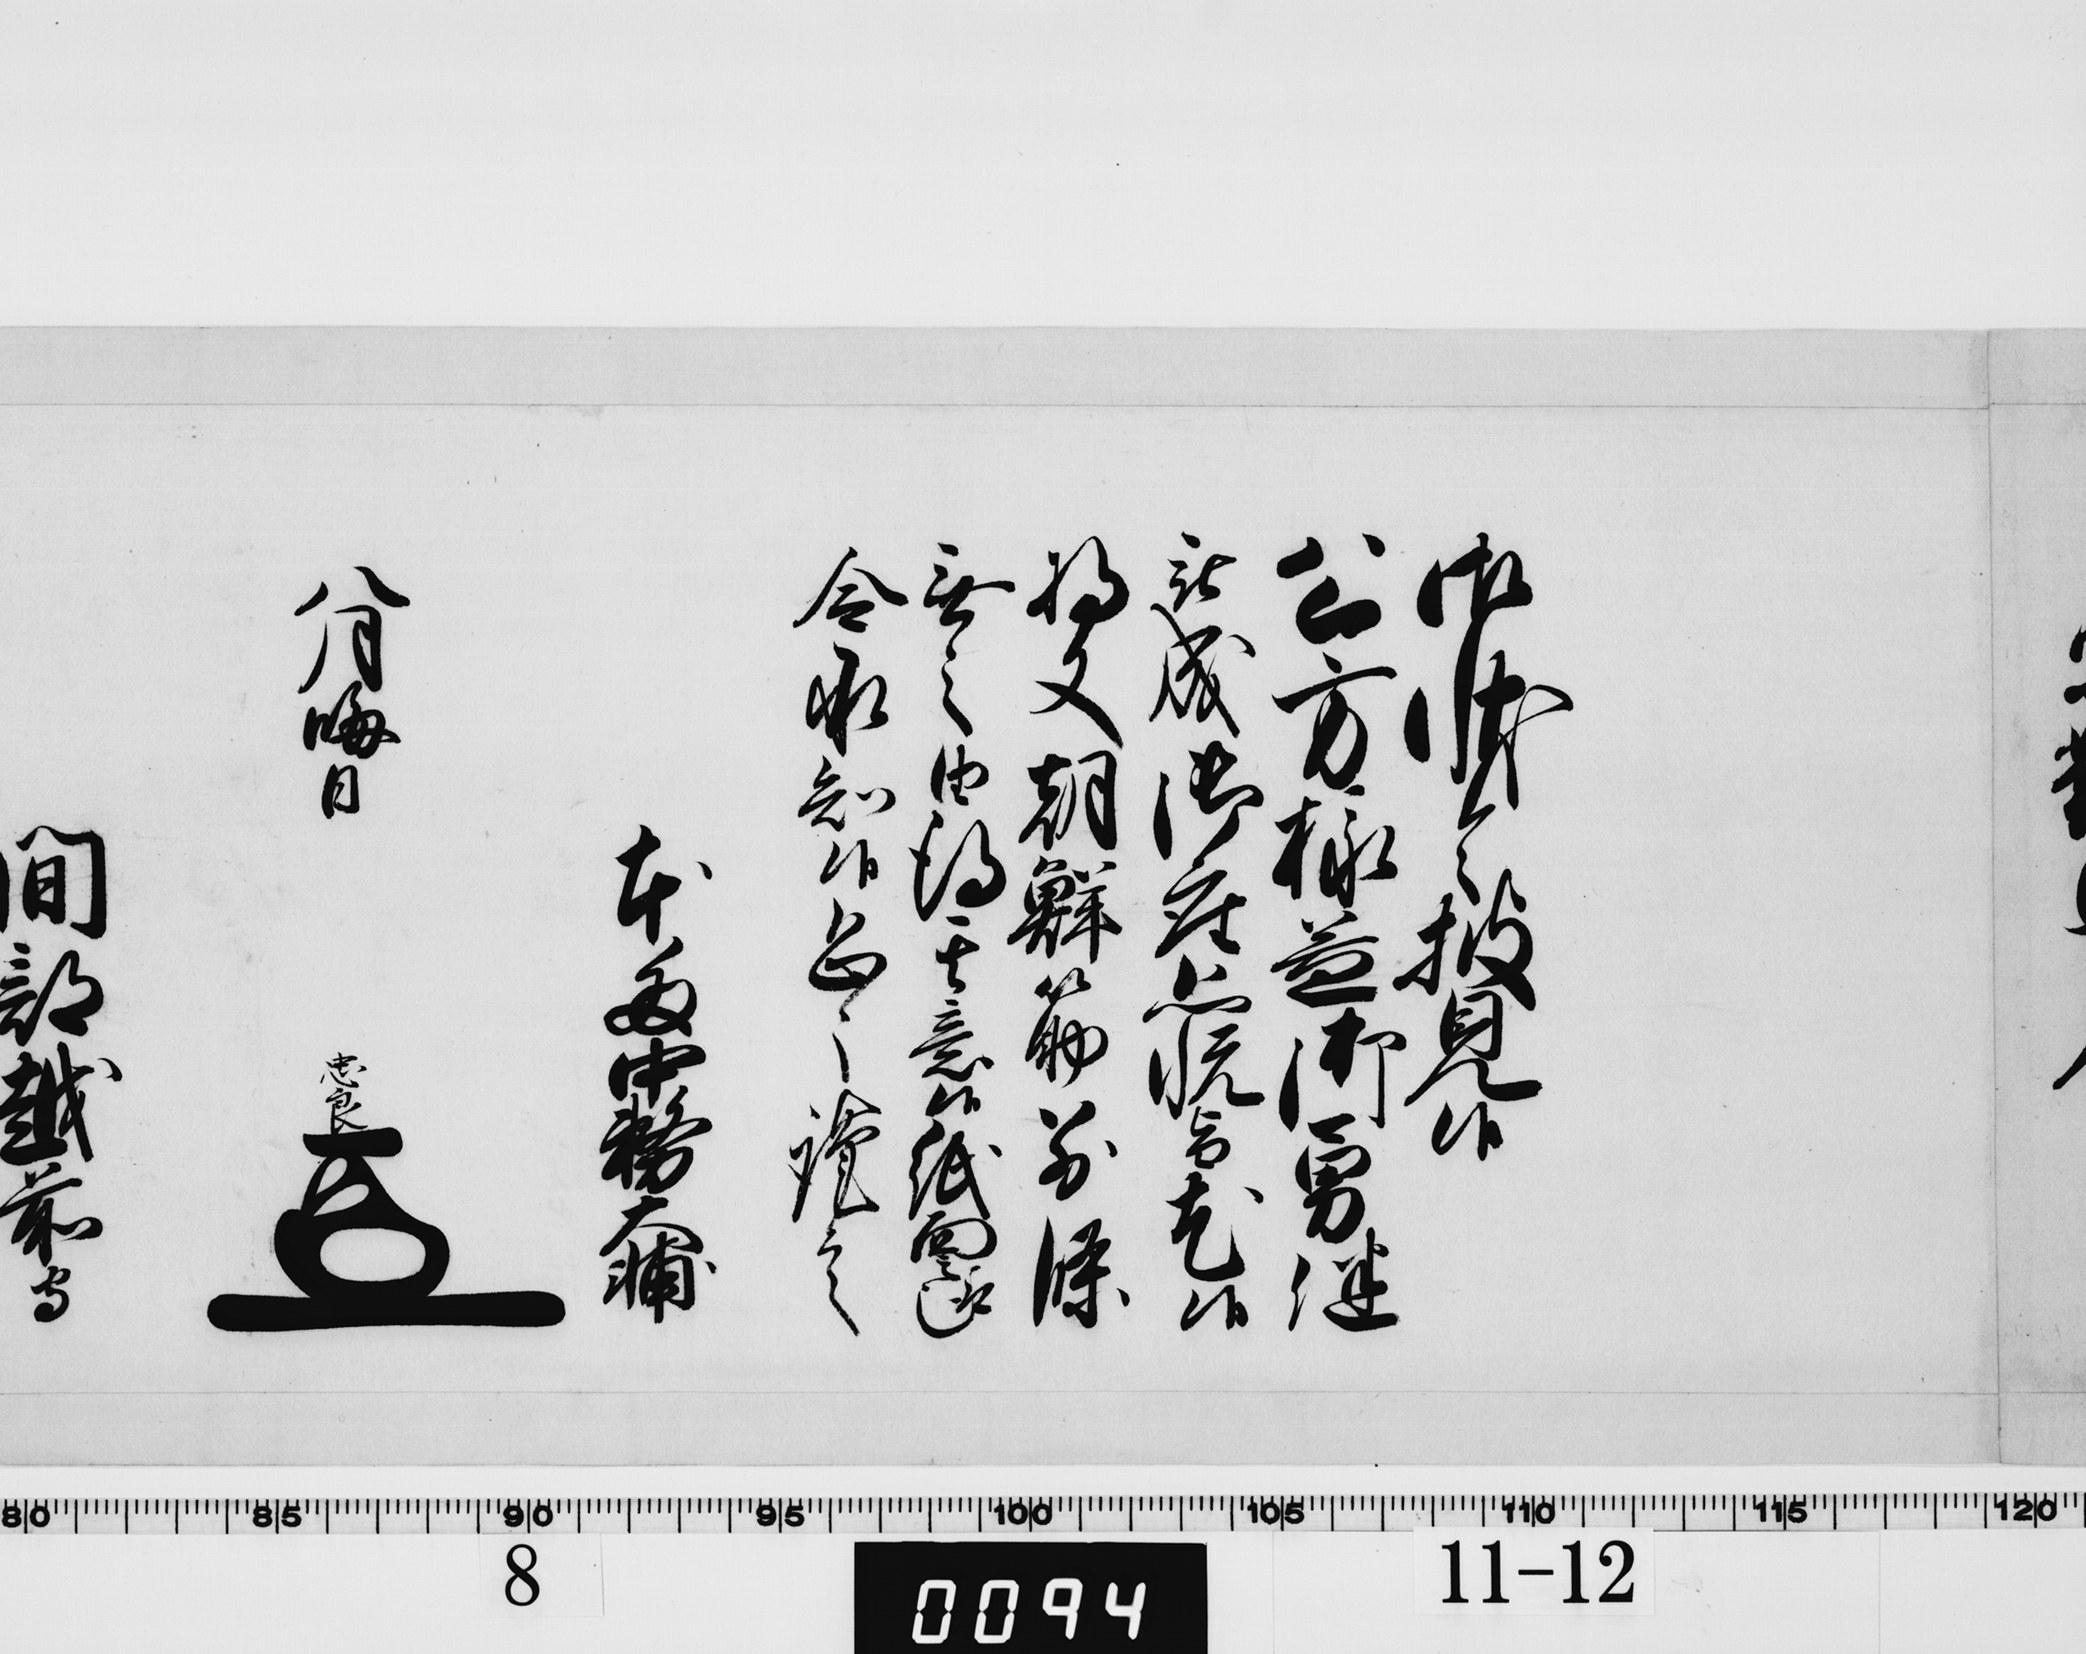 御状令披見候
公方様益御勇健
被成御座恐悦旨尤候
将又朝鮮筋別條
無之由得其意候紙面趣
令承知候恐々謹言
本多中務大輔
八月晦日
忠良
間部越前守
80 85 90 95 100 105 110 115 120
8
0094
11-12